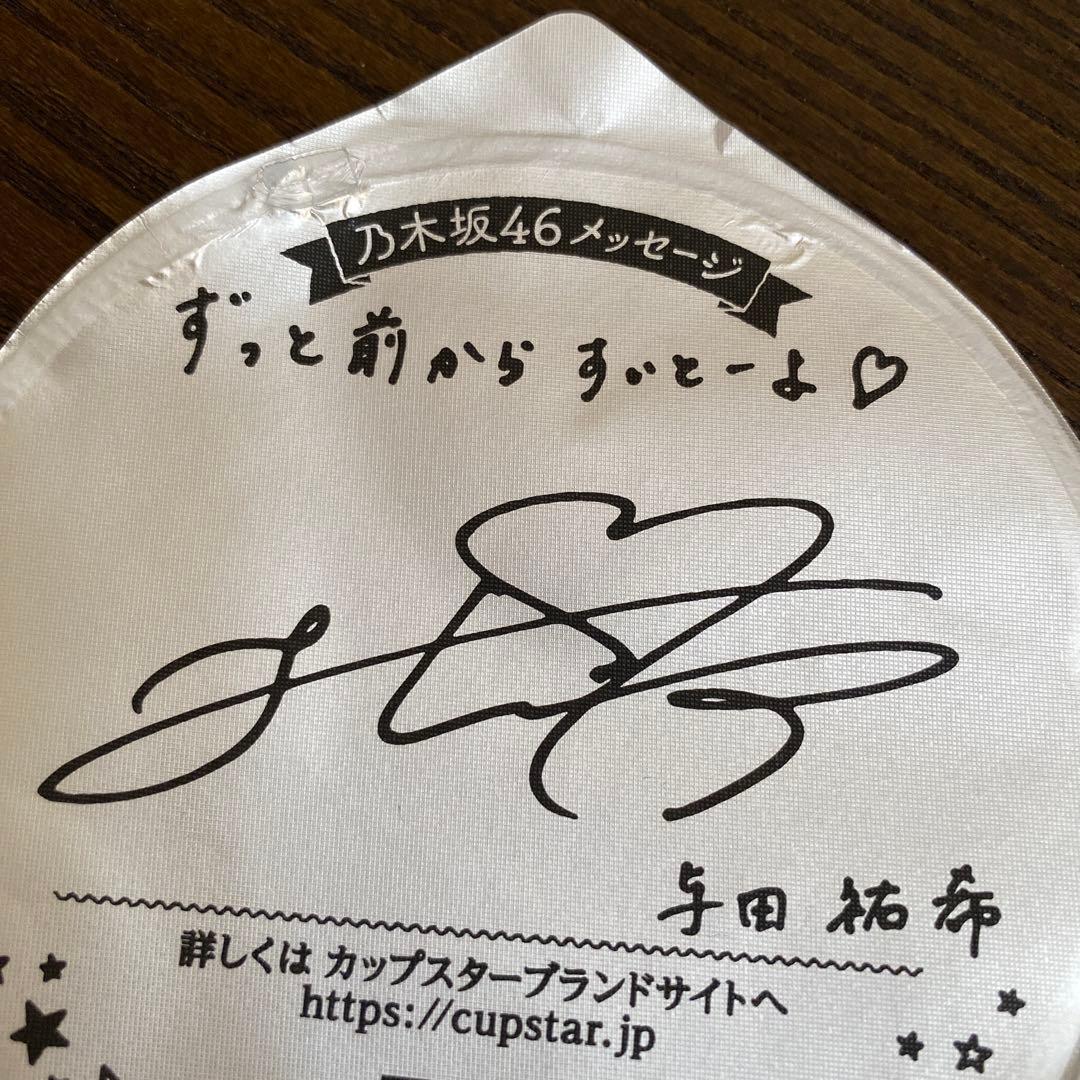 乃木坂46メッセージ
ずっと前から すいとーよ♡
与田 祐希
詳しくは カップスターブランドサイトへ
https://cupstar.jp